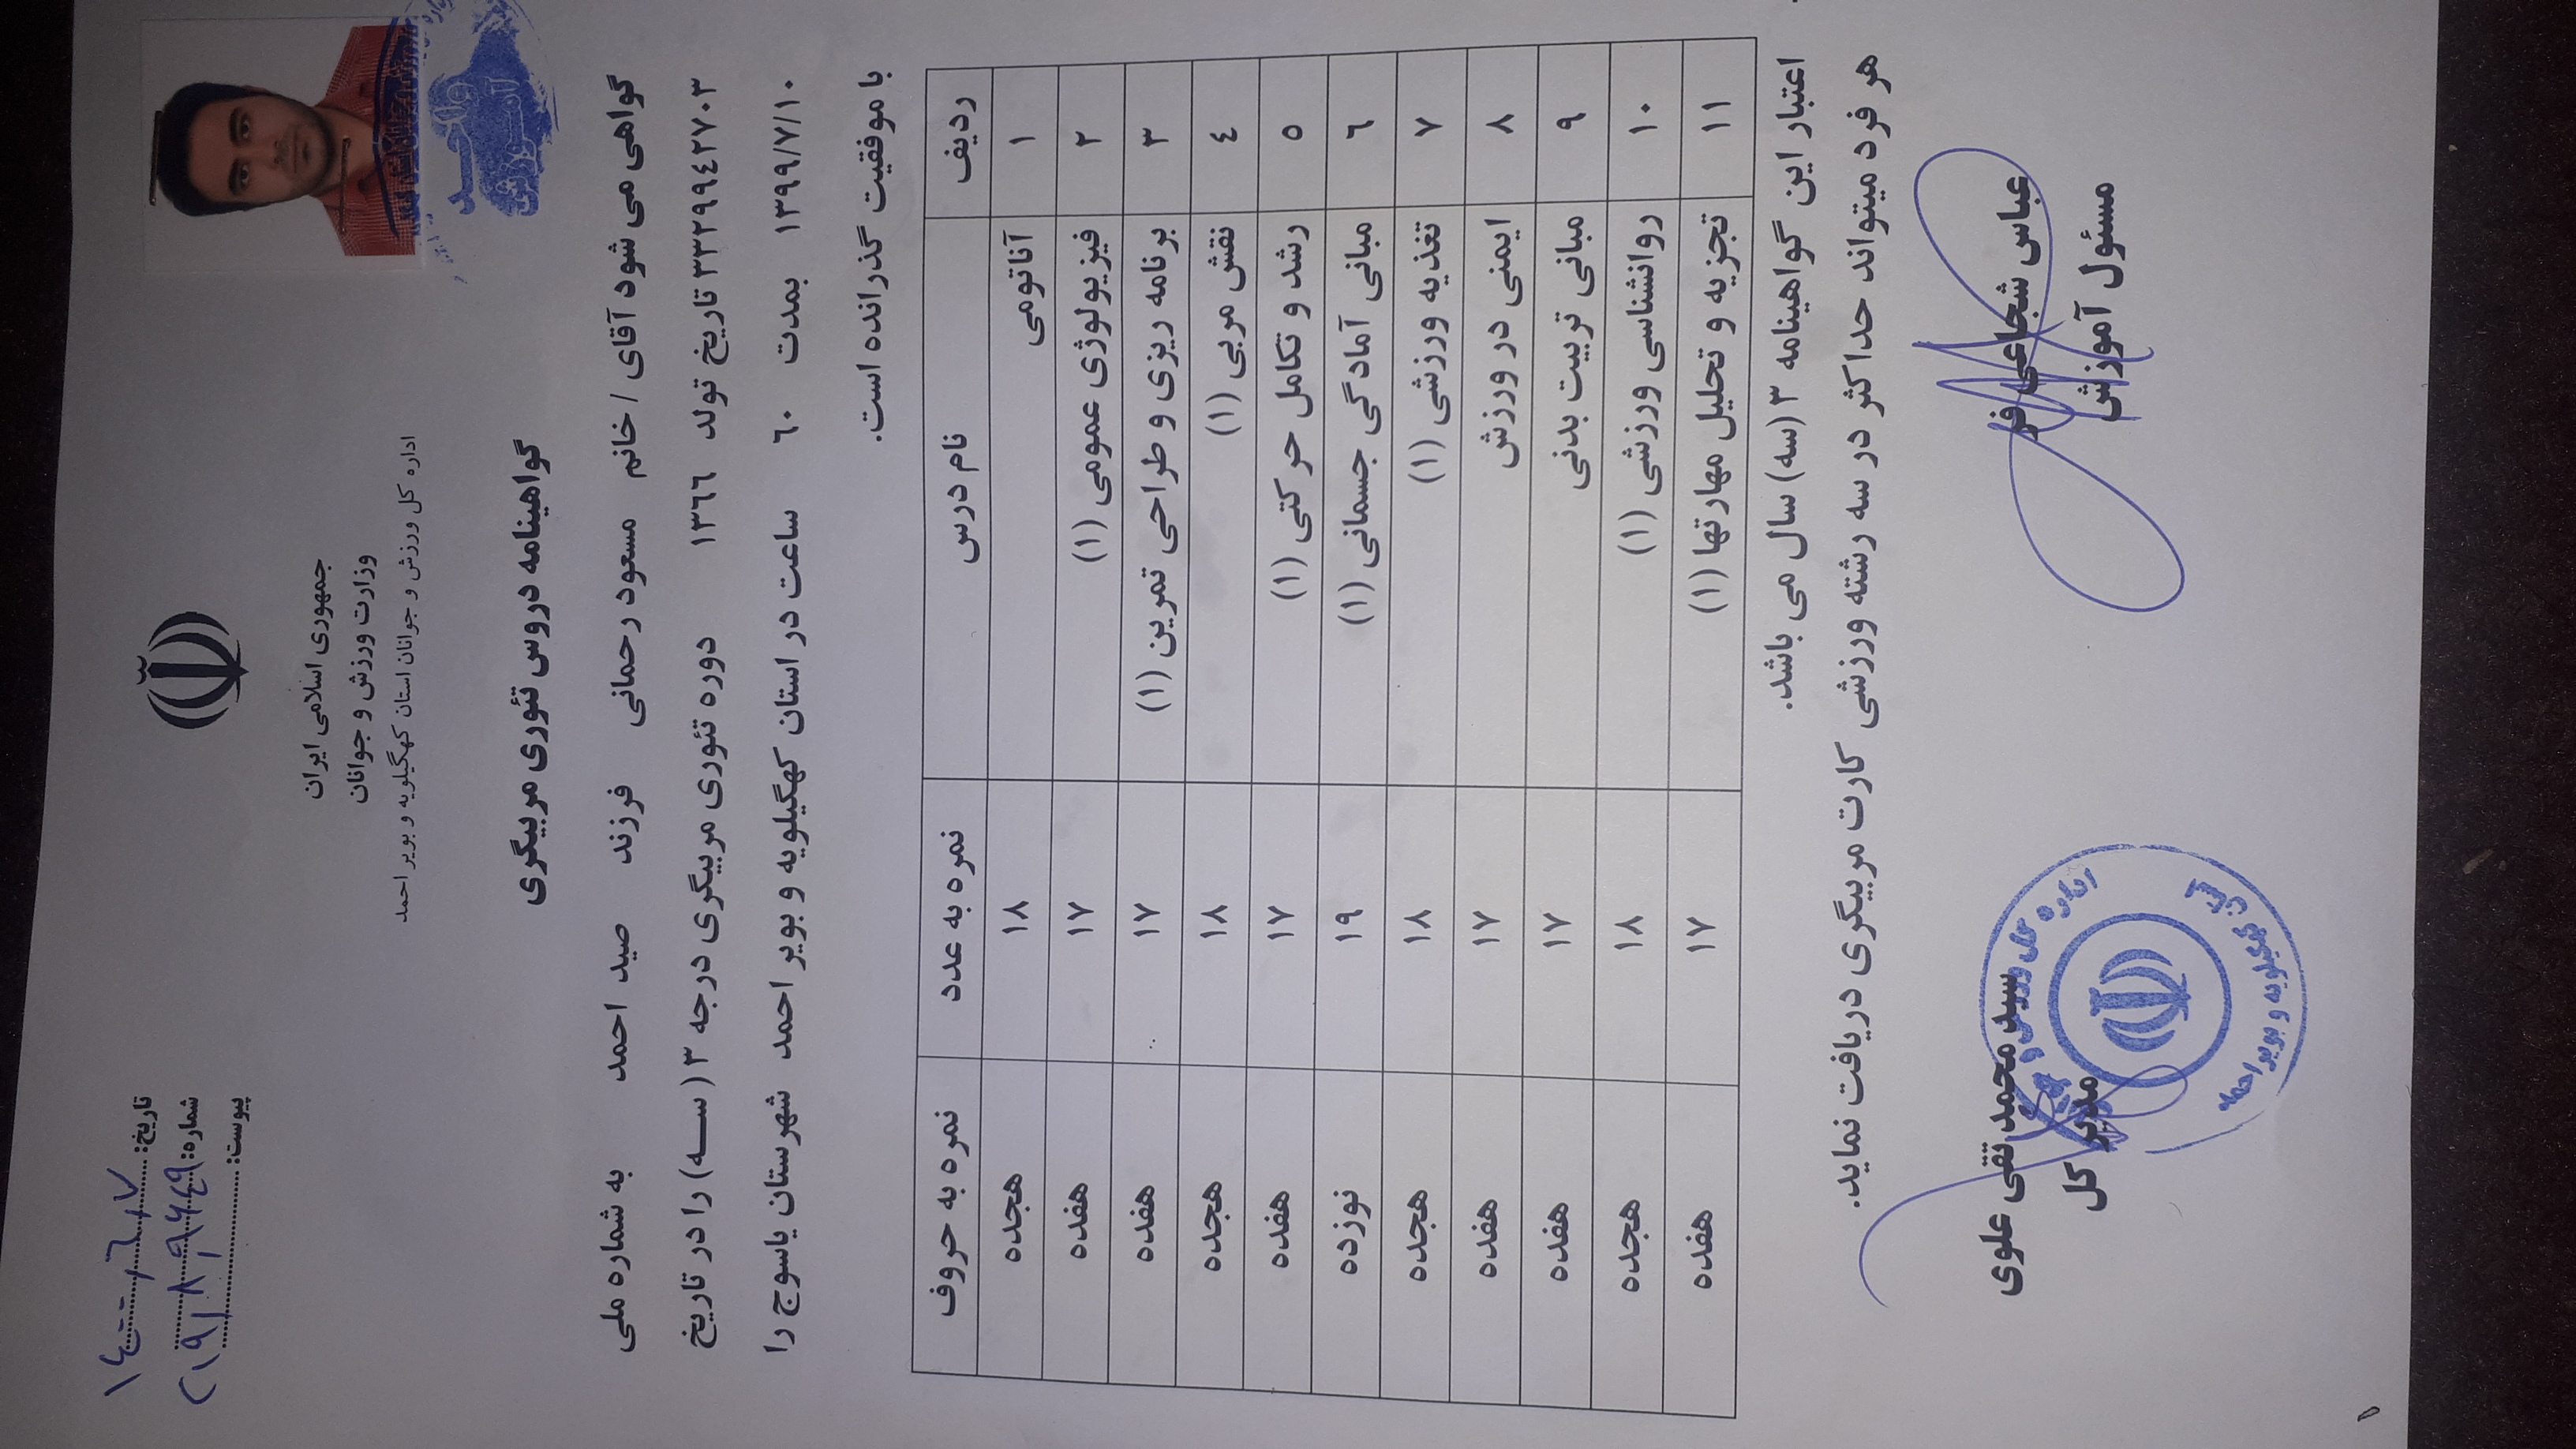 جمهوری اسلامی ایران
وزارت ورزش و جوانان
اداره کل ورزش و جوانان استان کهگیلویه و بویر احمد
تاریخ: ۱۴۰۰/۶/۷
شماره:
پیوست:
گواهینامه دروس تئوری مربیگری
گواهی می شود آقای / خانم مسعود رحمانی فرزند صید احمد به شماره ملی
۳۳۲۹۹٤۲۷۰۳ تاریخ تولد ۱۳٦٦ دوره تئوری مربیگری درجه ۳ (سه) را در تاریخ
۱۳۹۹/۷/۱۰ بمدت ٦۰ ساعت در استان کهگیلویه و بویر احمد شهرستان یاسوج را
با موفقیت گذرانده است.
ردیف نام درس نمره به عدد نمره به حروف
۱ آناتومی ۱۸ هجده
۲ فیزیولوژی عمومی (۱) ۱۷ هفده
۳ برنامه ریزی و طراحی تمرین (۱) ۱۷ هفده
٤ نقش مربی (۱) ۱۸ هجده
۵ رشد و تکامل حرکتی (۱) ۱۷ هفده
٦ مبانی آمادگی جسمانی (۱) ۱۹ نوزده
۷ تغذیه ورزشی (۱) ۱۸ هجده
۸ ایمنی در ورزش ۱۷ هفده
۹ مبانی تربیت بدنی ۱۷ هفده
۱۰ روانشناسی ورزشی (۱) ۱۸ هجده
۱۱ تجزیه و تحلیل مهارتها (۱) ۱۷ هفده
اعتبار این گواهینامه ۳ (سه) سال می باشد.
هر فرد میتواند حداکثر در سه رشته ورزشی کارت مربیگری دریافت نماید.
عباس شجاعی فر
مسئول آموزش
سید محمد تقی علوی
مدیر کل
اداره کل ورزش و
کهگیلویه و بویر احمد
واحد
آموزش